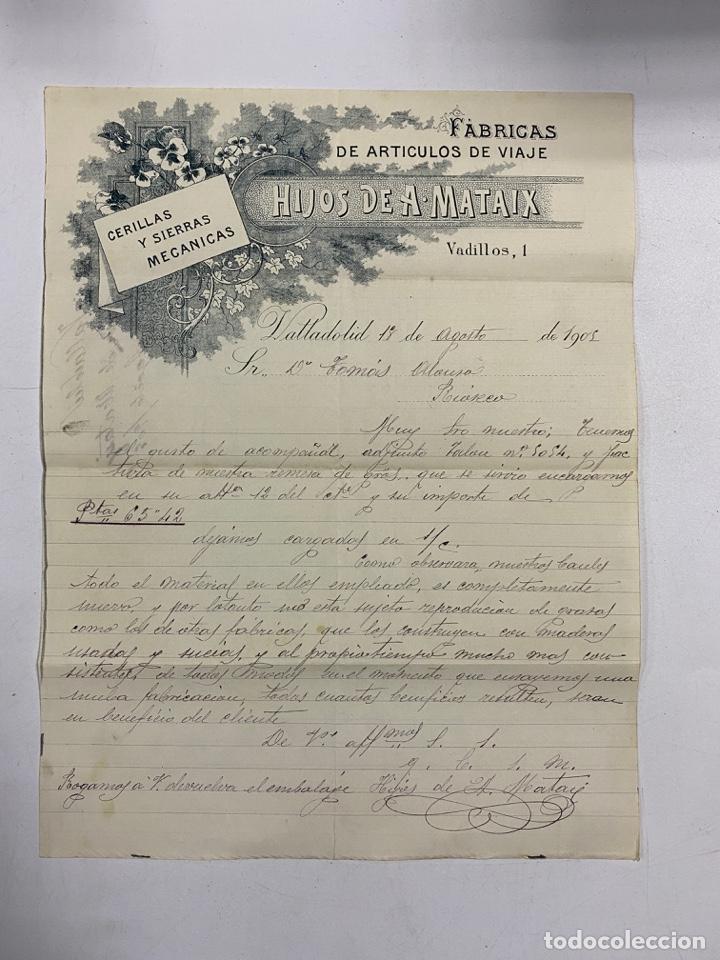 FÁBRICAS
DE ARTICULOS DE VIAJE
HIJOS DE A. MATAIX
Vadillos, 1
CERILLAS
Y SIERRAS
MECANICAS
Valladolid 13 de Agosto de 190
Sr. Dn Tomás Alonso
Rioseco
Muy Sro nuestro; Tenemos
el gusto de acompañar, adjunto Talon nº 5054, y fac
tura de nuestra remesa de que se sirvio encargarnos
en su atta 12 del cte y su importe de P
Ptas 65"42
dejamos cargados en s/c.
Como observara, nuestros baules
todo el material en ellos empleado, es completamente
nuevo, y por lo tanto no esta sujeto reproducion de grasas
como los de otras fábricas, que los construyen con maderas
usadas y sucias, y al propio tiempo mucho mas con
sistentes, de todos modos en el momento que ensayemos una
nueba fabricacion, todos cuantos beneficios resulten, seran
en beneficio del cliente
De Vs affmos S. S.
q. b. s. m.
Rogamos á V. devuelva el embalage Hijos de A. Mataix
todocoleccion
todocoleccion.net